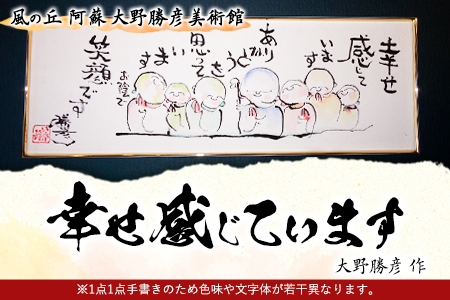 風の丘 阿蘇 大野勝彦美術館
幸せ
感じて
います
ありがとう
思って
います
お陰で
笑顔です
幸せ感じています
大野勝彦 作
※1点1点手書きのため色味や文字体が若干異なります。